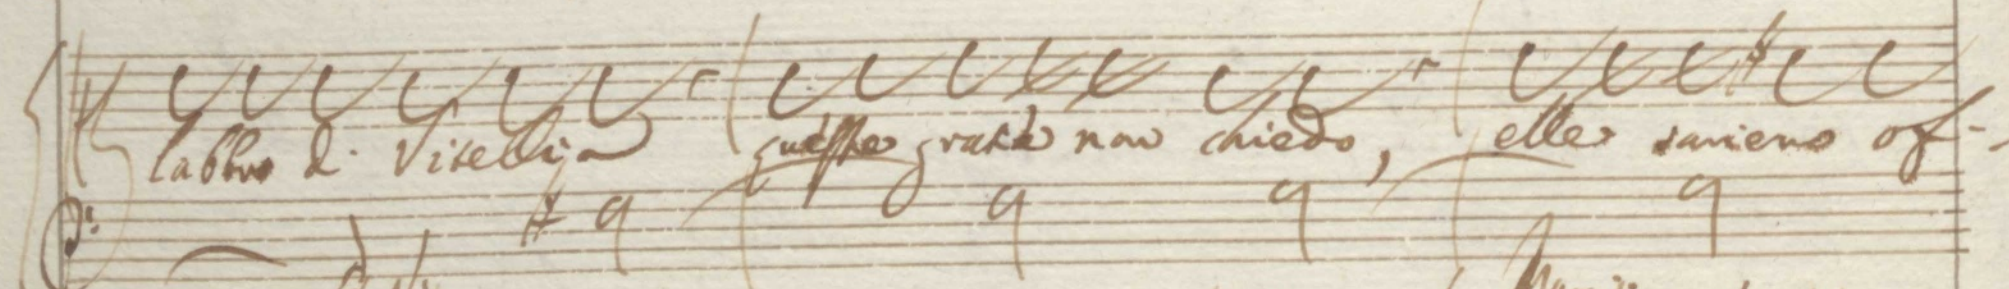 labbro di Vitellia queste grazie non chiedo, elle sarieno of-